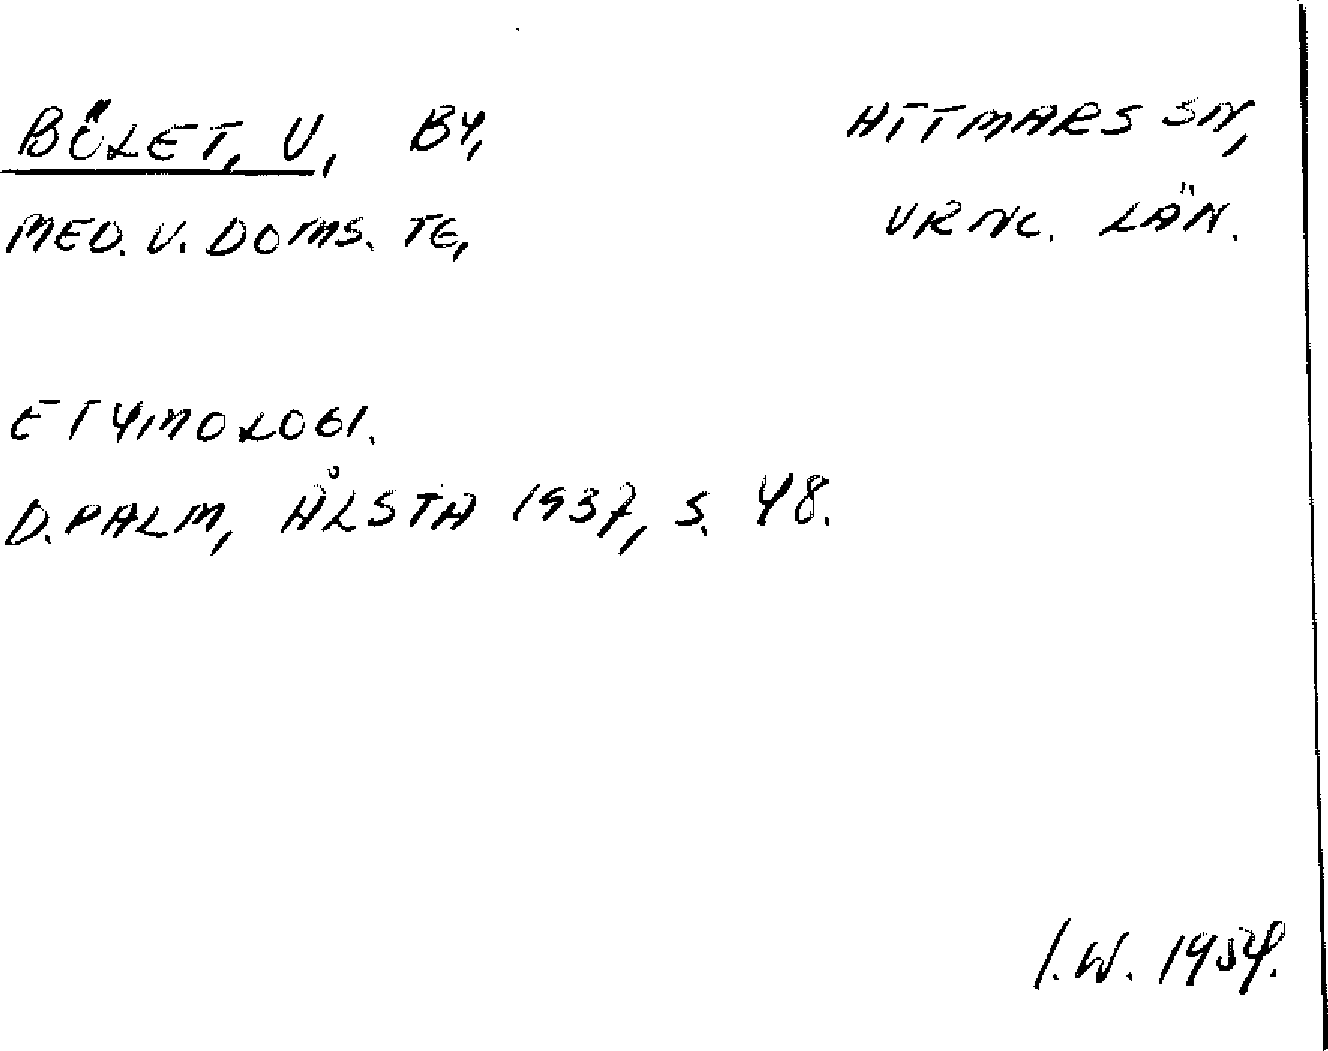 BÖLET, V, BY, ATTMARS SN,
MED. V. DOMS. TG, VRNL. LÄN.
ETYMOLOGI.
D. PALM, ÅLSTA 1937, S. 48.
I.W. 1954.